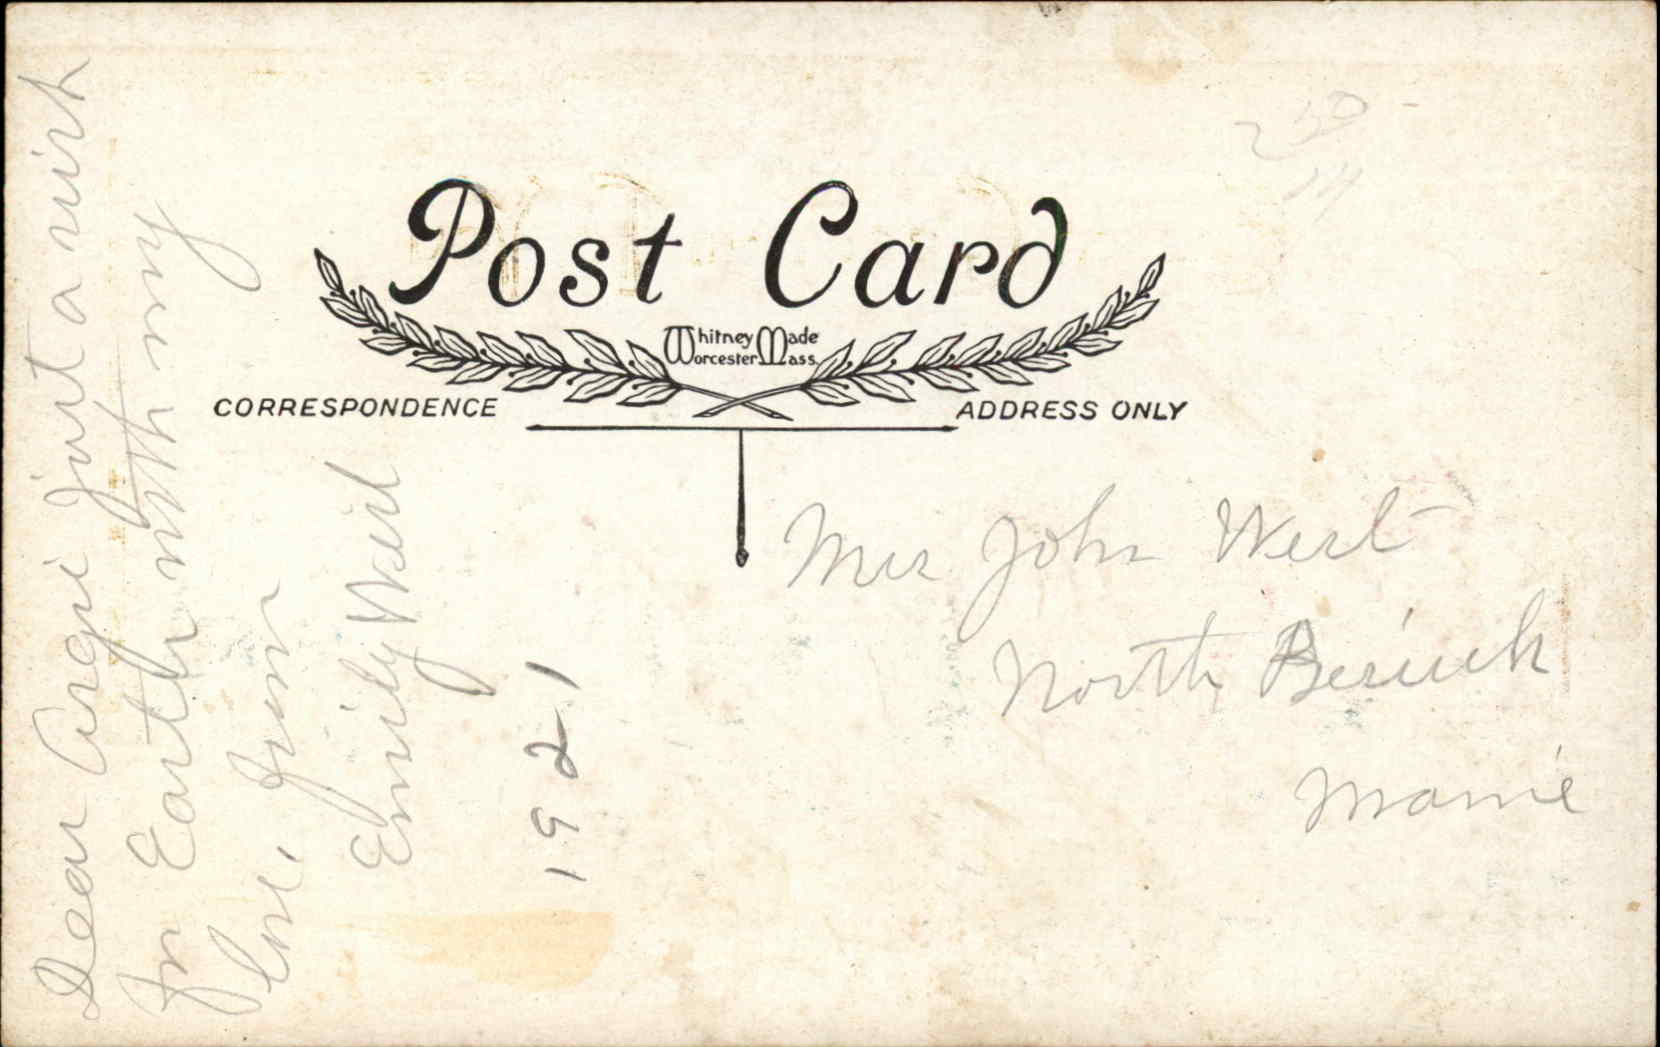 Post Card
Whitney Made
Worcester Mass.
CORRESPONDENCE
ADDRESS ONLY
Dear Angie just a wish
for Easter with my
love, from
Emily West
1921
Mrs John West
North Beriwck
Manie